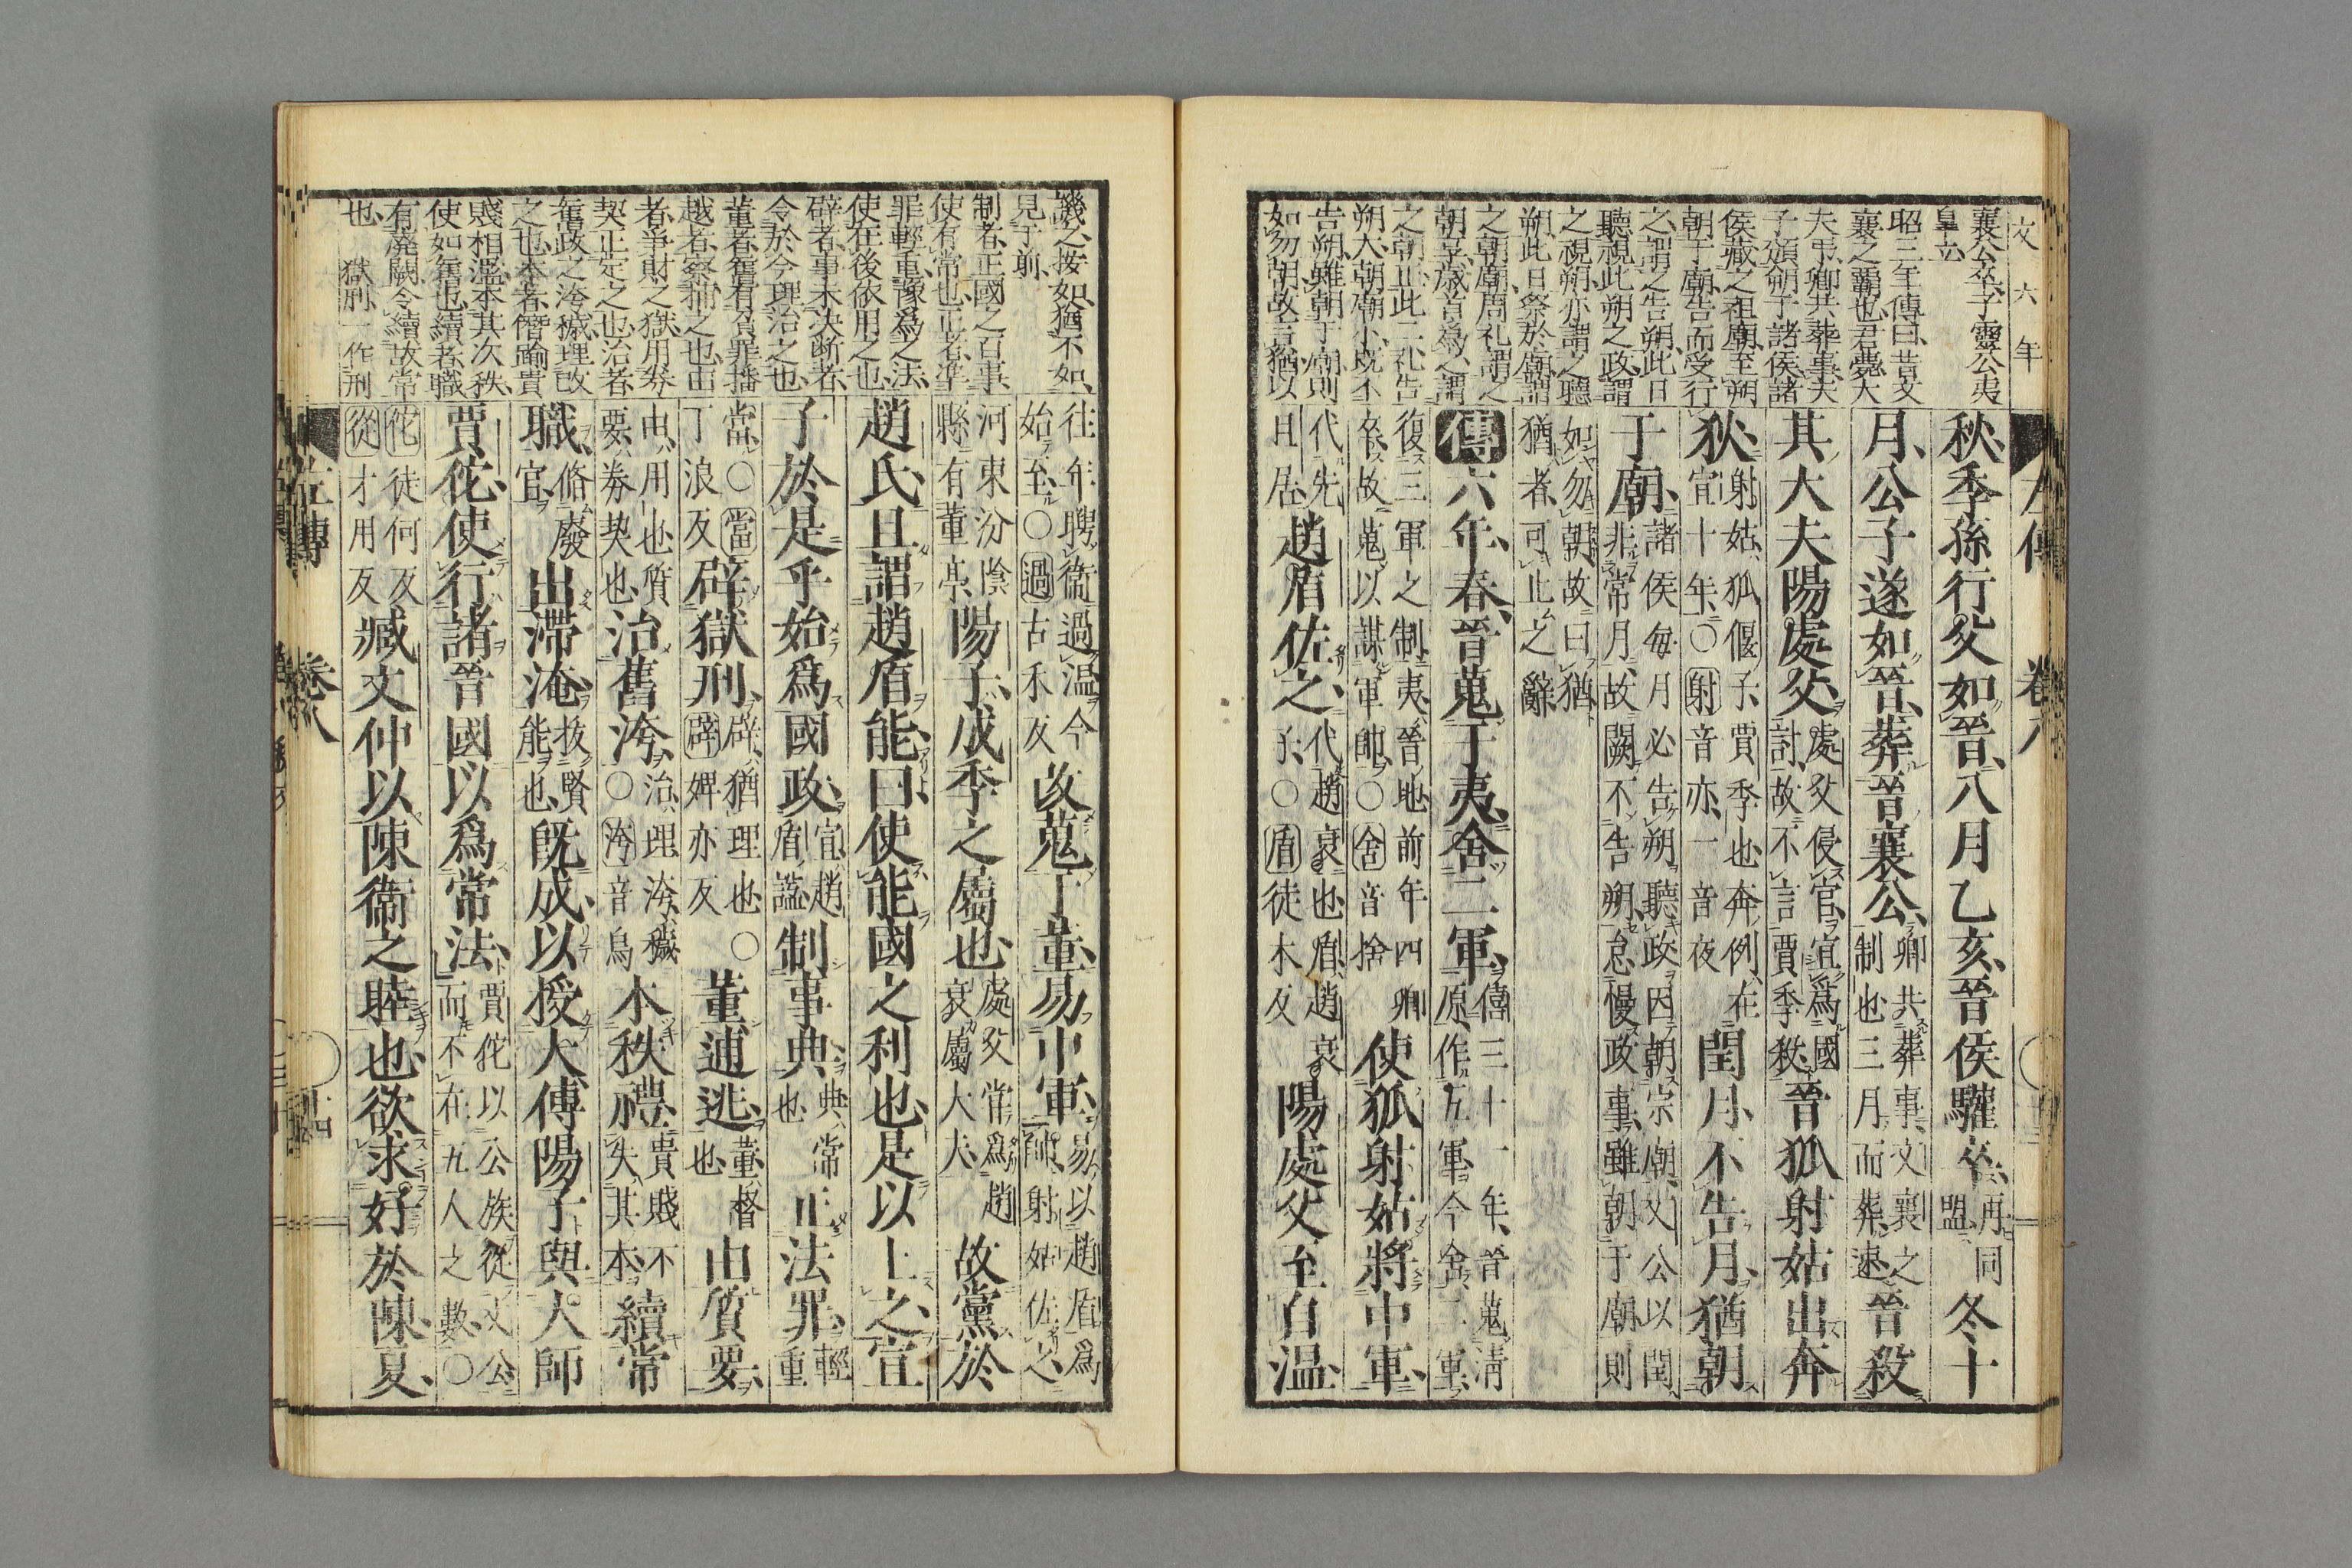 文六年
襄公卒子靈公夷
皐立
昭三年傳曰昔文
襄之霸也君薨大
夫弔卿共葬事夫
侯藏之祖廟至朔
朝于廟告而受行
之謂之告朔此日
聽視此朔之政謂
之視朔亦謂之聽
朔此日祭於廟謂
之朝廟周礼謂之
朝享歳首爲之謂
之朝正此二礼告
朔大朝廟小既不
告朔雖朝于廟則
如勿朝故言猶以
左傳 卷八
秋季孫行父如晉八月乙亥晉侯驩卒再同
盟冬十
月公子遂如晉葬晉襄公卿共葬事文襄之
制也三月而葬速晉殺
其大夫陽處父處父侵官宜爲國
討故不言賈季殺晉狐射姑出奔
狄射姑狐偃子賈季也奔例在
宣十年〇射音亦一音夜閏月不告月猶朝
于廟諸侯毎月必告朔聽政因朝宗廟文公以閏
非常月故闕不告朔怠慢政事雖朝于廟則
如勿朝故曰猶
猶者可止之辭
傳六年春晉蒐于夷舍二軍僖三十一年晉蒐清
原作五軍今舍二軍
復三軍之制夷晉地前年四卿
卒故蒐以謀軍帥〇舍音捨使狐射姑將中軍
代先
且居趙盾佐之代趙衰也盾趙衰
子〇盾徒木反陽處父至自温
譏之按如猶不如
見于前
制者正國之百事
使有常也正者準
罪輕重豫爲之法
使在後依用之也
辟者事未决断者
令於今理治之也
董者舊有負罪播
越者察捕之也由
者爭財之獄用券
契正定之也治者
舊政之洿穢理改
之也本者僭踰貴
賤相濫本其次秩
使如舊也續者職
有廢闕令續故常
也 獄刑一作刑
往年聘衛過温今
始至〇過古禾反改蒐于董易中軍易以趙盾爲
帥射姑佐之
河東汾陰
縣有董亭陽子成季之屬也處父常爲趙
衰屬大夫故黨於
趙氏且謂趙盾能曰使能國之利也是以上之宣
子於是乎始爲國政宣趙
盾謚制事典典常
也正法罪輕重
當〇當
丁浪反辟獄刑辟猶理也〇
辟婢亦反董逋逃董督
也由質要
由用也質
要券契也治舊洿治理洿穢
〇洿音烏本秩禮貴賤不
失其本續常
職脩廢
官出滯淹拔賢
能也既成以授大傅陽子與大師
賈佗使行諸晉國以爲常法賈佗以公族從文公
而不在五人之數〇
佗徒何反
從才用反臧文仲以陳衛之睦也欲求好於陳夏
左傳 卷八 十四